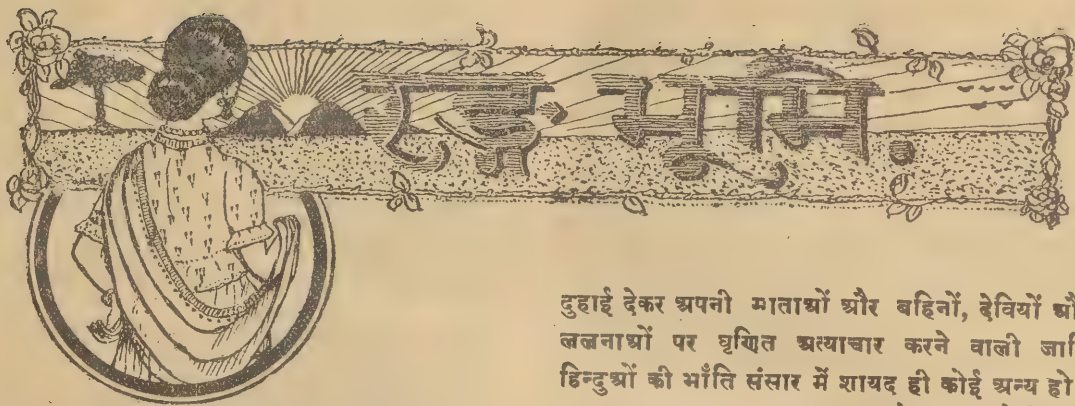 रङ्ग-भूमि.
दुहाई देकर अपनी माताओं और बहिनों, देवियों औ
ललनाओं पर घृणित अत्याचार करने वाली जाति
हिन्दुओं की भाँति संसार में शायद ही कोई अन्य हो